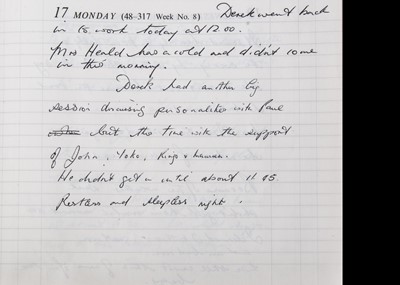 17 MONDAY (48–317 Week No. 8) Derek went back
in to work today at 12.00.
Mrs Herald has a cold and didn't come
in this morning.
Derek had another big
session discussing personalities with Paul
but this time with the support
of John, Yoko, Ringo & Maureen.
He didn't get in until about 11.45.
Restless and sleepless night.